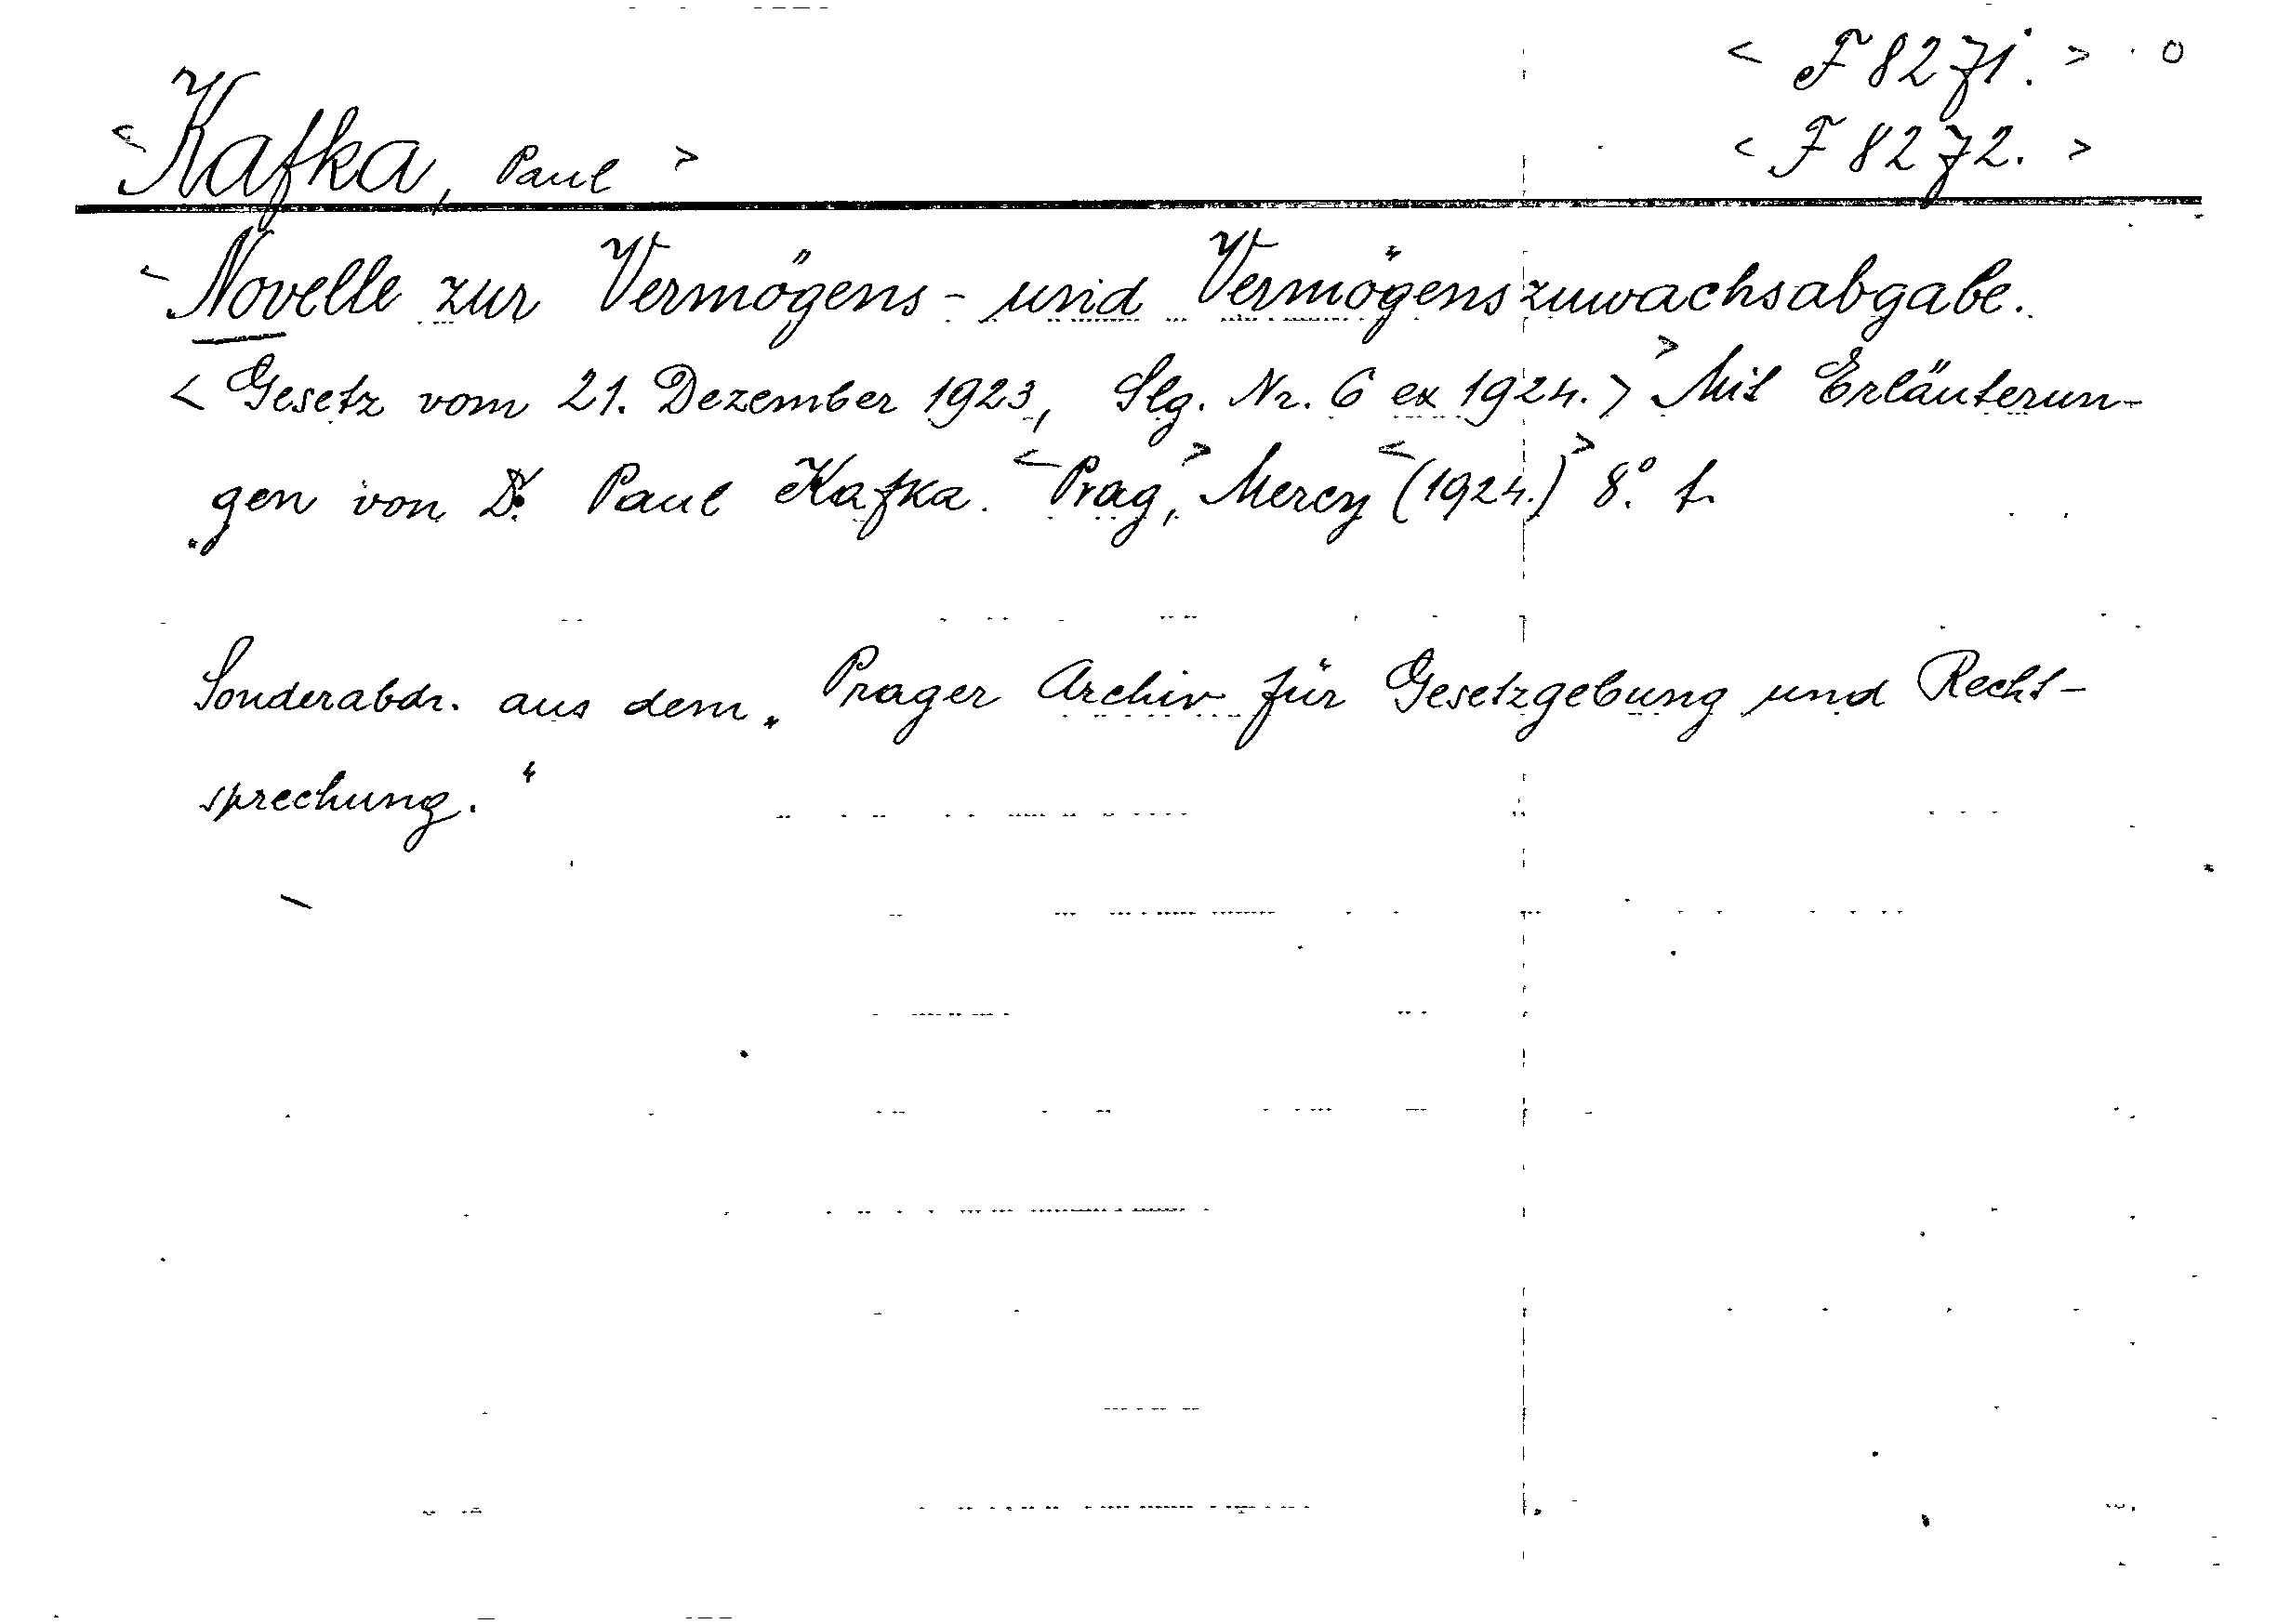 < F 8271. > 0
< Kafka, Paul >
< F 8272. >
< Novelle zur Vermögens- und Vermögenszuwachsabgabe.
< Gesetz vom 21. Dezember 1923, Slg. Nr. 6 ex 1924. > > Mit Erläuterun-
gen von Dr. Paul Kafka. < Prag, > Mercy < (1924.) > 8°. f.
Sonderabdr. aus dem „Prager Archiv für Gesetzgebung und Recht-
sprechung.“